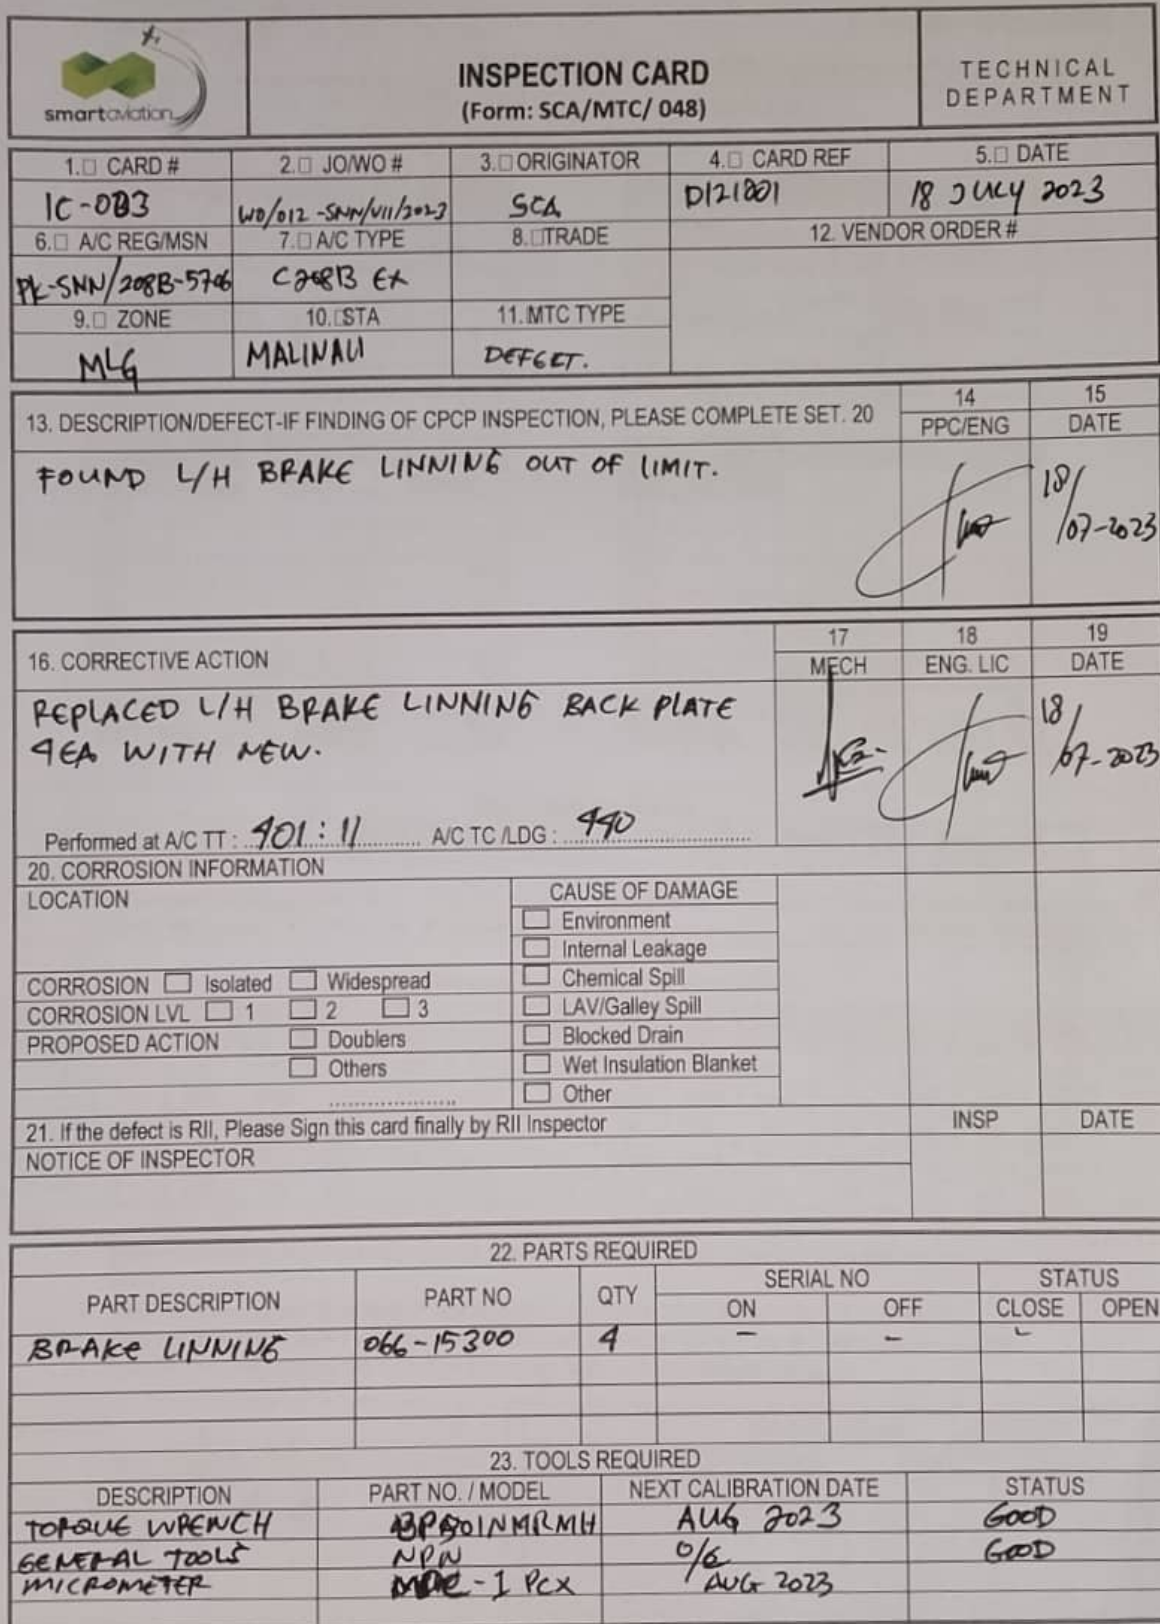 smartaviation
INSPECTION CARD
(Form: SCA/MTC/ 048)
TECHNICAL
DEPARTMENT
1.□ CARD # 2.□ JO/WO # 3.□ ORIGINATOR 4.□ CARD REF 5.□ DATE
IC-003 WO/012-SNN/VII/2023 SCA D121801 18 JULY 2023
6.□ A/C REG/MSN 7.□ A/C TYPE 8.□TRADE 12. VENDOR ORDER #
PK-SNN/208B-5706 C208B EX
9.□ ZONE 10.□STA 11.MTC TYPE
MLG MALINAU DEFECT.
13. DESCRIPTION/DEFECT-IF FINDING OF CPCP INSPECTION, PLEASE COMPLETE SET. 20 14 15
PPC/ENG DATE
FOUND L/H BRAKE LINNING OUT OF LIMIT. 18/
07-2023
16. CORRECTIVE ACTION 17 18 19
MECH ENG. LIC DATE
REPLACED L/H BRAKE LINNING BACK PLATE 18/
4EA WITH NEW. 07-2023
Performed at A/C TT : 401:11 A/C TC /LDG : 440
20. CORROSION INFORMATION
LOCATION CAUSE OF DAMAGE
Environment
Internal Leakage
CORROSION Isolated Widespread Chemical Spill
CORROSION LVL 1 2 3 LAV/Galley Spill
PROPOSED ACTION Doublers Blocked Drain
Others Wet Insulation Blanket
Other
21. If the defect is RII, Please Sign this card finally by RII Inspector INSP DATE
NOTICE OF INSPECTOR
22. PARTS REQUIRED
PART DESCRIPTION PART NO QTY SERIAL NO STATUS
ON OFF CLOSE OPEN
BRAKE LINNING 066-15300 4 - -
23. TOOLS REQUIRED
DESCRIPTION PART NO. / MODEL NEXT CALIBRATION DATE STATUS
TORQUE WRENCH AUG 2023 GOOD
GENERAL TOOLS NPN GOOD
MICROMETER AUG 2023